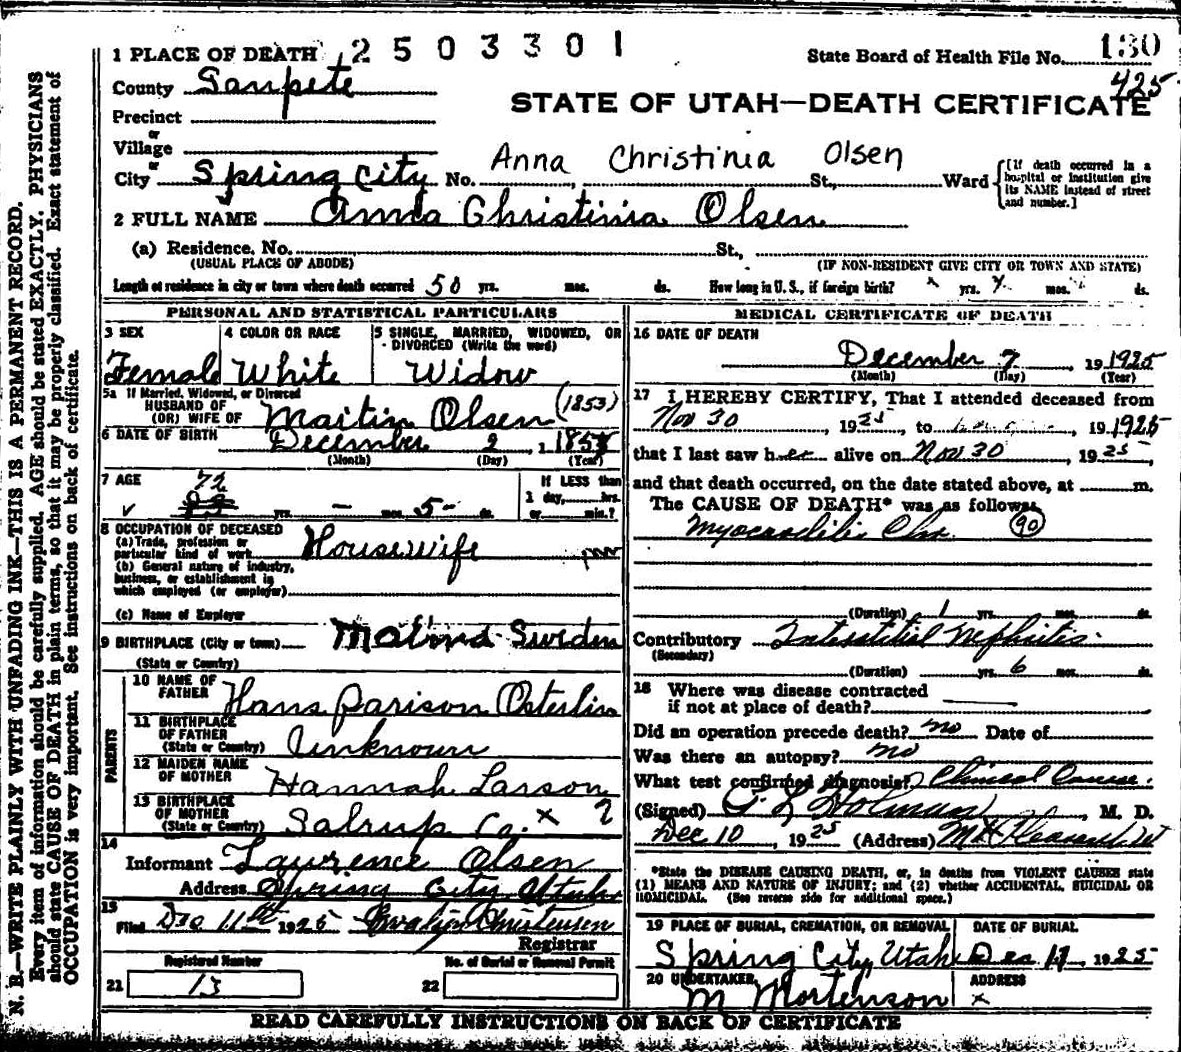 1 PLACE OF DEATH 2503301 State Board of Health File No. 130
425
County Sanpete
STATE OF UTAH—DEATH CERTIFICATE
Precinct
or
Village
or
City Spring City No. St., Ward
Anna Christinia Olsen
[If death occurred in a hospital or institution give its NAME instead of street and number.]
2 FULL NAME Anna Christinia Olsen
(a) Residence. No. St.,
(USUAL PLACE OF ABODE) (IF NON-RESIDENT GIVE CITY OR TOWN AND STATE)
Length of residence in city or town where death occurred 50 yrs. mos. ds. How long in U. S., if foreign birth? yrs. mos. ds.
PERSONAL AND STATISTICAL PARTICULARS
3 SEX
Female
4 COLOR OR RACE
White
5 SINGLE, MARRIED, WIDOWED, OR DIVORCED (Write the word)
Widow
5a If Married, Widowed, or Divorced
HUSBAND OF
(OR) WIFE OF Martin Olsen (1853)
6 DATE OF BIRTH December 2, 185
(Month) (Day) (Year)
7 AGE
72
yrs. — mos. 5 ds.
If LESS than
1 day, hrs.
or min.?
8 OCCUPATION OF DECEASED
(a) Trade, profession or particular kind of work Housewife
(b) General nature of industry, business, or establishment in which employed (or employer)
(c) Name of Employer
9 BIRTHPLACE (City or town) Sweden
(State or Country)
PARENTS
10 NAME OF FATHER Hans Parison Osterlin
11 BIRTHPLACE OF FATHER
(State or Country) Unknown
12 MAIDEN NAME OF MOTHER Hannah Larson
13 BIRTHPLACE OF MOTHER
(State or Country) Co. x ?
14
Informant Lawrence Olsen
Address Spring City Utah
15
Filed Dec 11th 1925 Christensen
Registrar
Registered Number
21 13
No. of Burial or Removal Permit
22
MEDICAL CERTIFICATE OF DEATH
16 DATE OF DEATH
December 7, 19 1925
(Month) (Day) (Year)
17 I HEREBY CERTIFY, That I attended deceased from
Nov 30, 1925, to , 19 1925
that I last saw her alive on Nov 30, 1925,
and that death occurred, on the date stated above, at m.
The CAUSE OF DEATH* was as follows:
Myocarditis Chr. 90
(Duration) 1 yrs. mos. ds.
Contributory Interstitial Nephritis
(Secondary)
(Duration) yrs. 6 mos. ds.
18 Where was disease contracted
if not at place of death?
Did an operation precede death? no Date of
Was there an autopsy? no
What test confirmed diagnosis? Clinical Course.
(Signed) Holman, M. D.
Dec 10, 1925 (Address) Mt Pleasant Ut
*State the DISEASE CAUSING DEATH, or, in deaths from VIOLENT CAUSES state
(1) MEANS AND NATURE OF INJURY; and (2) whether ACCIDENTAL, SUICIDAL OR
HOMICIDAL. (See reverse side for additional space.)
19 PLACE OF BURIAL, CREMATION, OR REMOVAL
Spring City, Utah
DATE OF BURIAL
Dec 1925
20 UNDERTAKER
M Mortenson
ADDRESS
x
READ CAREFULLY INSTRUCTIONS ON BACK OF CERTIFICATE
N. B.—WRITE PLAINLY WITH UNFADING INK—THIS IS A PERMANENT RECORD.
Every item of information should be carefully supplied. AGE should be stated EXACTLY. PHYSICIANS
should state CAUSE OF DEATH in plain terms, so that it may be properly classified. Exact statement of
OCCUPATION is very important. See instructions on back of certificate.